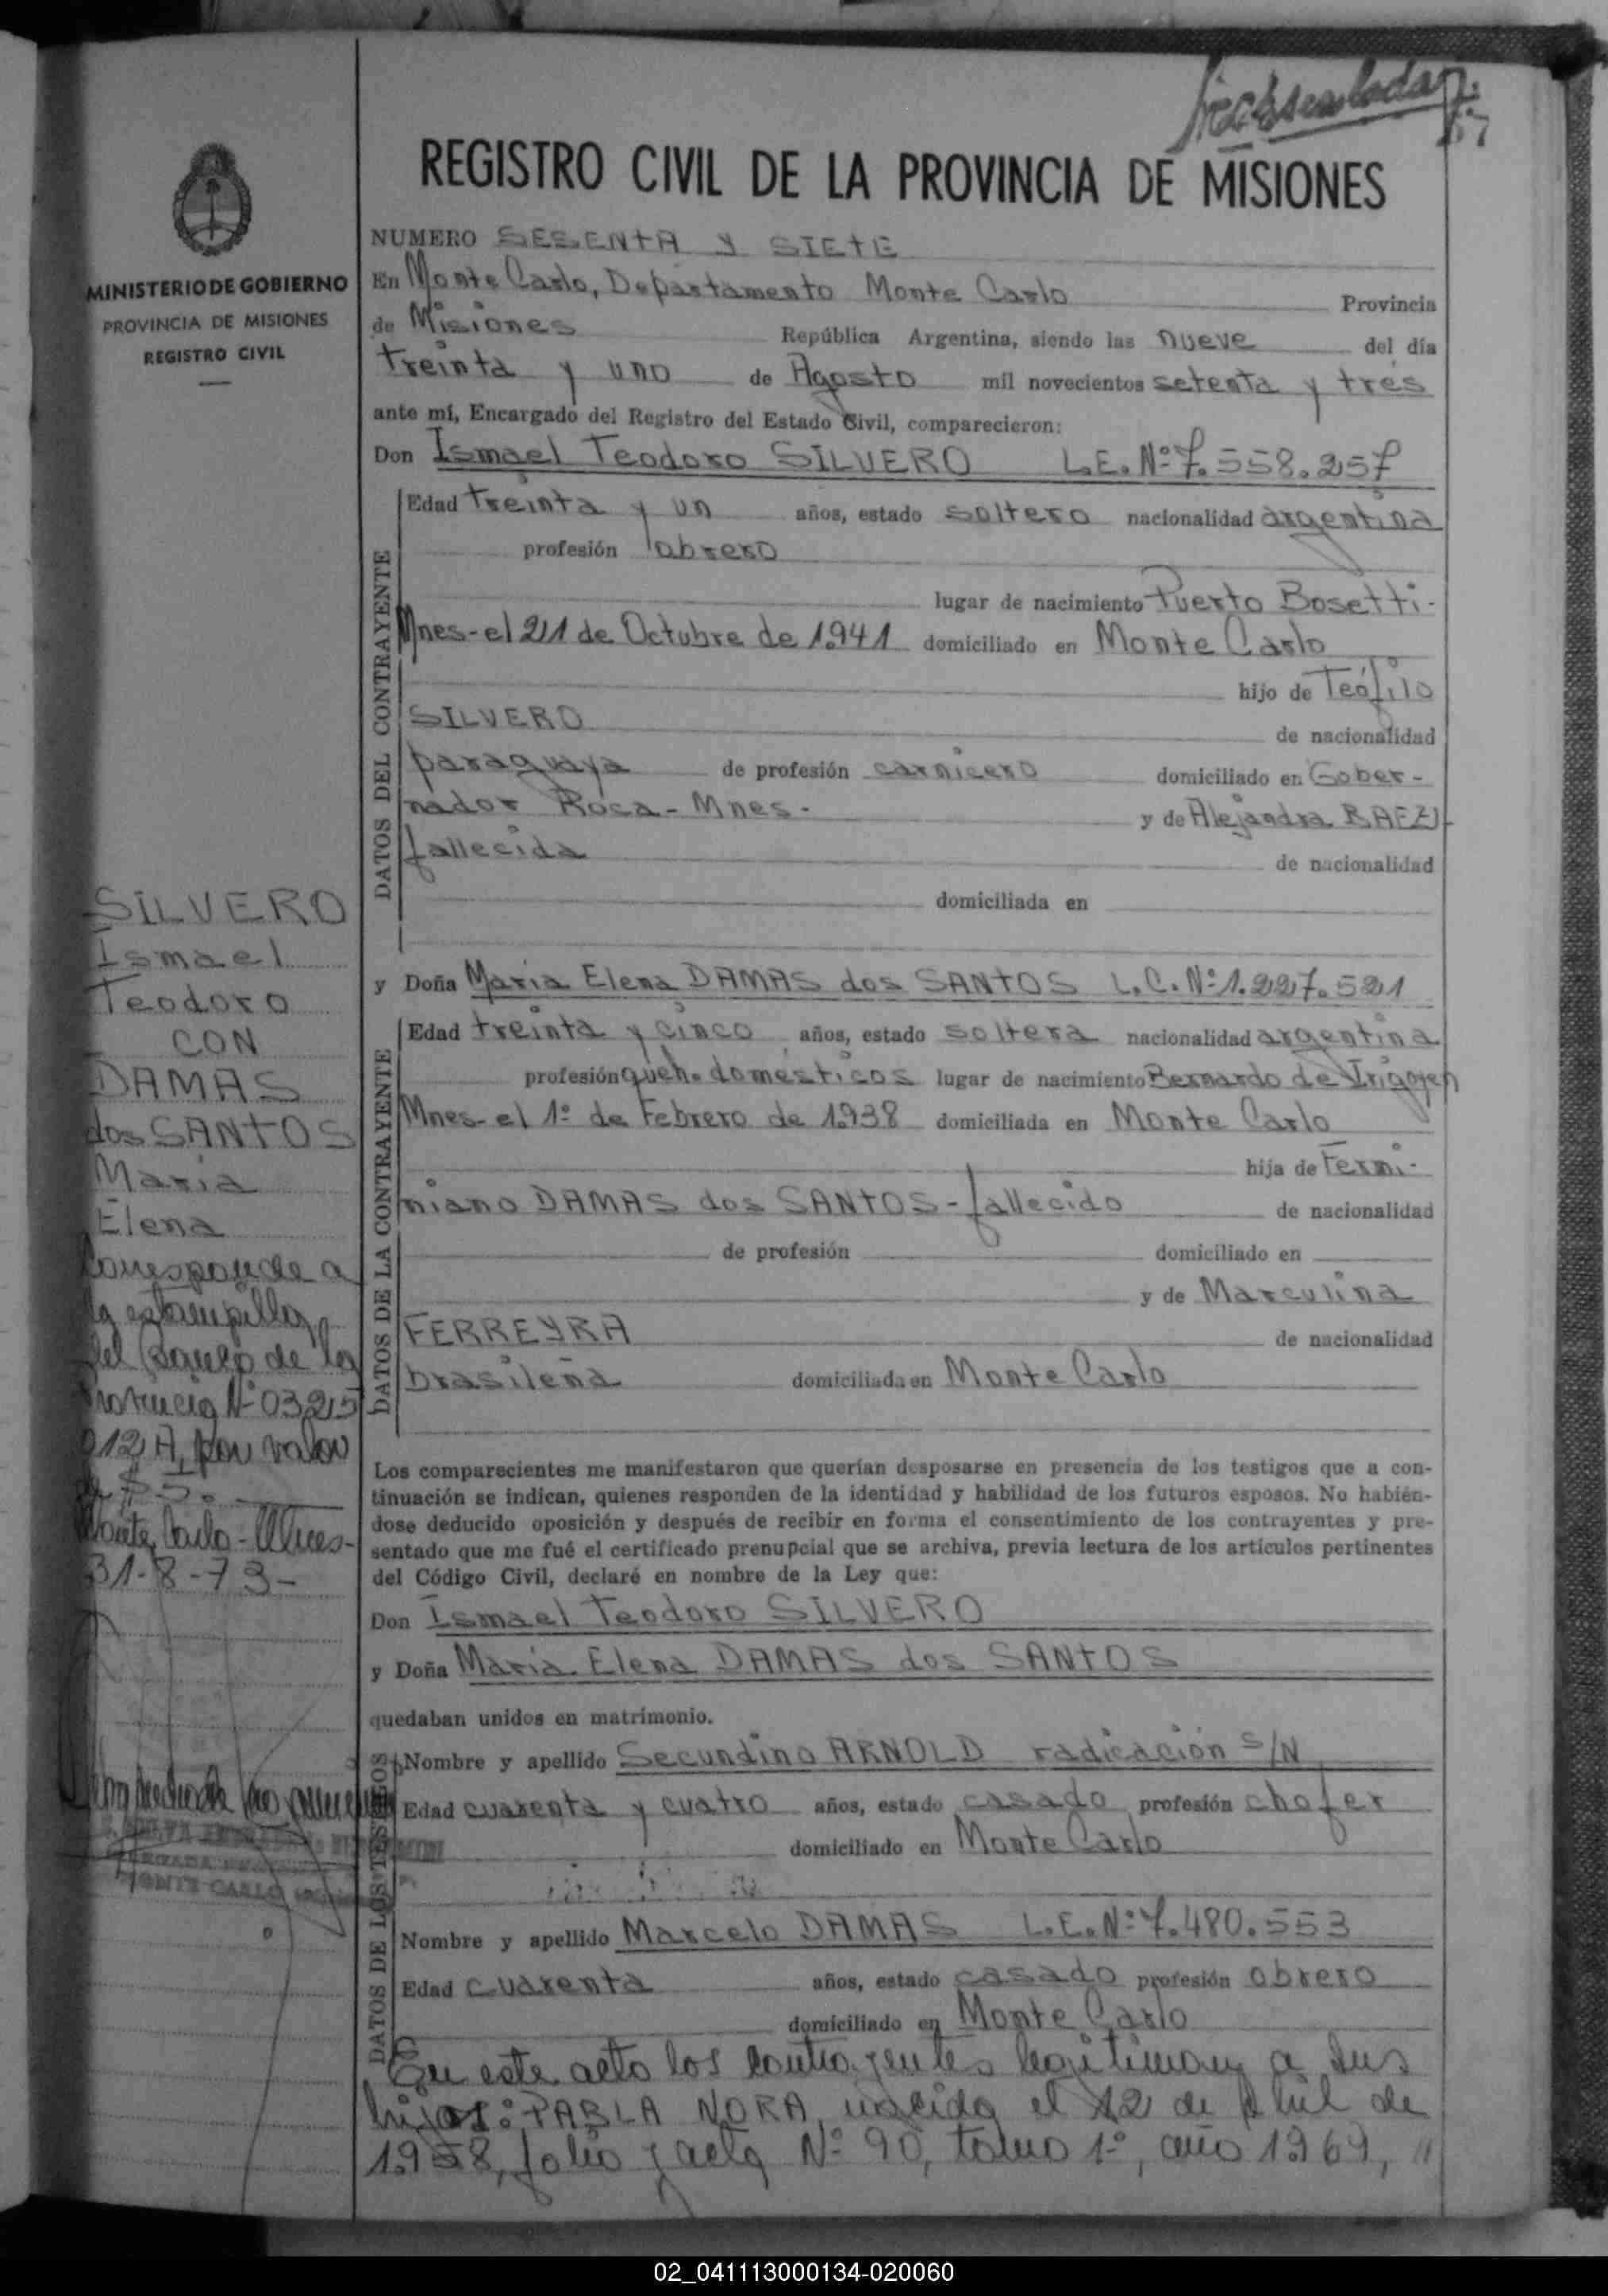 67
REGISTRO CIVIL DE LA PROVINCIA DE MISIONES
MINISTERIO DE GOBIERNO
PROVINCIA DE MISIONES
REGISTRO CIVIL
NUMERO SESENTA Y SIETE
En Monte Carlo, Departamento Monte Carlo Provincia
de Misiones República Argentina, siendo las nueve del día
treinta y uno de Agosto mil novecientos setenta y tres
ante mí, Encargado del Registro del Estado Civil, comparecieron:
Don Ismael Teodoro SILVERO L.E. Nº 7.558.257
DATOS DEL CONTRAYENTE
Edad treinta y un años, estado soltero nacionalidad argentina
profesión obrero
lugar de nacimiento Puerto Bosetti-
Mnes-el 21 de Octubre de 1.941 domiciliado en Monte Carlo
hijo de Teófilo
SILVERO de nacionalidad
paraguaya de profesión carnicero domiciliado en Gober-
nador Roca-Mnes- y de Alejandra BAEZ-
fallecida de nacionalidad
domiciliada en
y Doña Maria Elena DAMAS dos SANTOS L.C. Nº 1.227.521
DATOS DE LA CONTRAYENTE
Edad treinta y cinco años, estado soltera nacionalidad argentina
profesión queh. domésticos lugar de nacimiento Bernardo de Irigoyen
Mnes-el 1º de Febrero de 1.938 domiciliada en Monte Carlo
hija de Fermi-
niano DAMAS dos SANTOS-fallecido de nacionalidad
de profesión domiciliado en
y de Marculina
FERREYRA de nacionalidad
brasileña domiciliada en Monte Carlo
Los comparecientes me manifestaron que querían desposarse en presencia de los testigos que a con-
tinuación se indican, quienes responden de la identidad y habilidad de los futuros esposos. No habién-
dose deducido oposición y después de recibir en forma el consentimiento de los contrayentes y pre-
sentado que me fué el certificado prenupcial que se archiva, previa lectura de los artículos pertinentes
del Código Civil, declaré en nombre de la Ley que:
Don Ismael Teodoro SILVERO
y Doña Maria Elena DAMAS dos SANTOS
quedaban unidos en matrimonio.
DATOS DE LOS TESTIGOS
Nombre y apellido Secundino ARNOLD radicación S/N
Edad cuarenta y cuatro años, estado casado profesión chofer
domiciliado en Monte Carlo
Nombre y apellido Marcelo DAMAS L.E. Nº 7.480.553
Edad cuarenta años, estado casado profesión obrero
domiciliado en Monte Carlo
En este acto los contrayentes legitiman a sus
hijos: PABLA NORA, nacida el 12 de Abril de
1.958, folio y acta Nº 90, tomo 1º, año 1.969, "
SILVERO
Ismael
Teodoro
CON
DAMAS
dos SANTOS
Maria
Elena
Corresponde a
la estampilla
del Banco de la
Provincia Nº 0325
012 A, por valor
de $ 5.
Monte Carlo-Mnes-
31-8-73-
MONTE CARLO
02_041113000134-020060